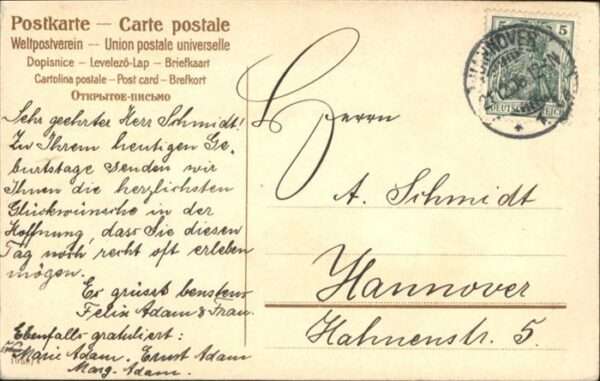 Postkarte — Carte postale
Weltpostverein — Union postale universelle
Dopisnice — Levelező-Lap — Briefkaart
Cartolina postale — Post card — Brefkort
Открытое-письмо
Sehr geehrter Herr Schmidt!
Zu Ihrem heutigen Ge-
burtstage senden wir
Ihnen die herzlichsten
Glückwünsche in der
Hoffnung, dass Sie diesen
Tag noch recht oft erleben
mögen.
Es grüsst bestens
Felix Adam & Frau.
Ebenfalls gratuliert:
Marie Adam. Ernst Adam
Marg. Adam.
Herrn
A. Schmidt
Hannover
Hahnenstr. 5.
HANNOVER
5
DEUTSCHES REICH